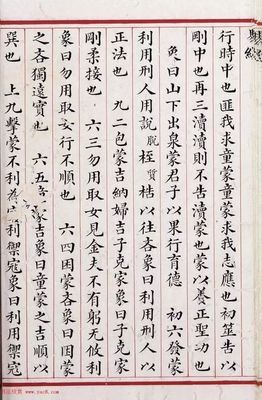 行時中也匪我求童蒙童蒙求我志應也初筮告以
剛中也再三瀆瀆則不告瀆蒙也蒙以養正聖功也
象曰山下出泉蒙君子以果行育德 初六發蒙
利用刑人用說脱桎質梏以往吝象曰利用刑人以
正法也 九二包蒙吉納婦吉子克家象曰子克家
剛柔接也 六三勿用取女見金夫不有躬无攸利
象曰勿用取女行不順也 六四困蒙吝象曰困蒙
之吝獨遠實也 六五 蒙吉象曰童蒙之吉順以
巽也 上九擊蒙不利為 利禦寇象曰利用禦寇
www.yac8.com